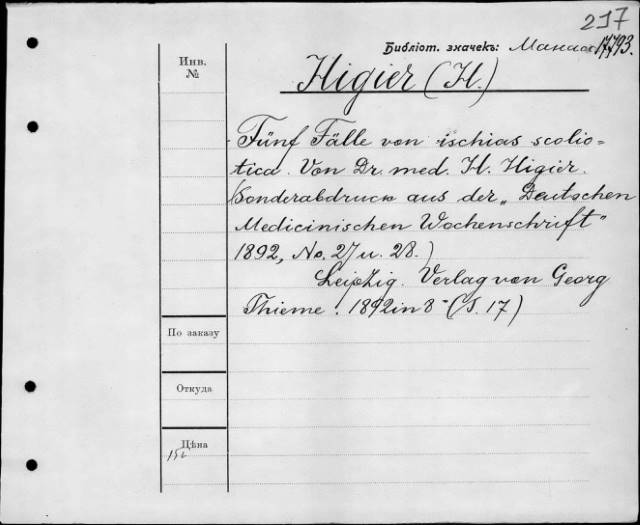 217
Библіот. значекъ: Манас 17793.
Инв.
№
Higier (H.)
Fünf Fälle von ischias scolio=
tica. Von Dr. med. H. Higier.
(Sonderabdruck aus der „Deutschen
Medicinischen Wochenschrift"
1892, No. 27 u. 28.)
Leipzig. Verlag von Georg
Thieme. 1892 in 8- (S. 17)
По заказу
Откуда
Цѣна